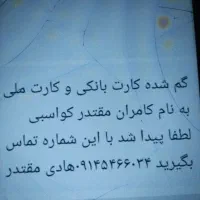 گم شده کارت بانکی و کارت ملی
به نام کامران مقتدر کواسبی
لطفا پیدا شد با این شماره تماس
بگیرید ۰۹۱۴۵۴۶۶۰۳۴هادی مقتدر